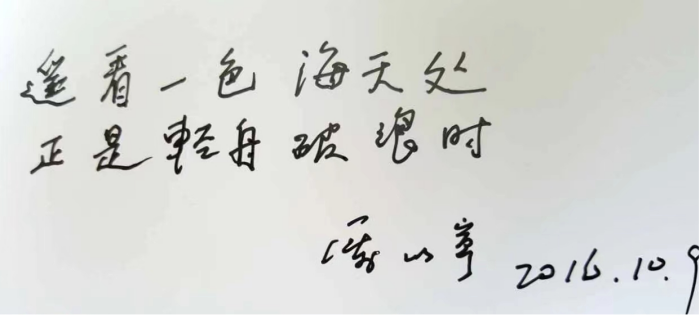 遥看一色海天处
正是輕舟破浪时
厲以寧 2016.10.9